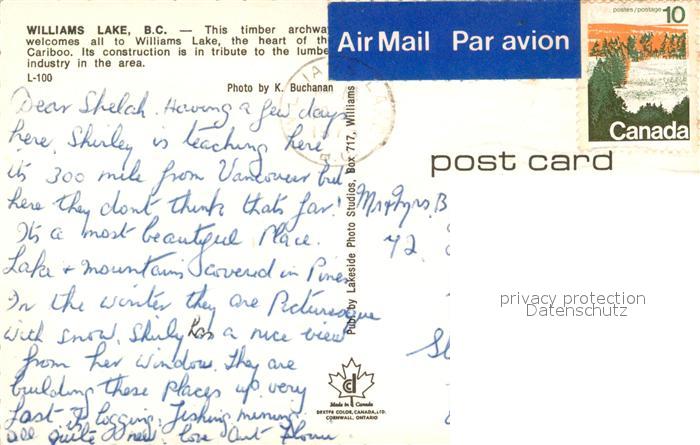 WILLIAMS LAKE, B.C. — This timber archway
welcomes all to Williams Lake, the heart of the
Cariboo. Its construction is in tribute to the lumber
industry in the area.
L-100
Photo by K. Buchanan
Air Mail Par avion
postes/postage 10
Canada
post card
Dear Shelah. Having a few days
here, Shirley is teaching here
its 300 mile from Vancouver but
here they dont think thats far!
Its a most beautiful Place.
Lake + mountains covered in Pines
In the winter they are Picturesque
with snow. Shirly has a nice view
from her window. They are
building these places up very
fast. logging. Fishing mining.
all quite new. love Aunt
Mr & Mrs. B
42
Publ by Lakeside Photo Studios, Box 717, Williams
Made in Canada
DEXTER COLOR, CANADA, LTD.
CORNWALL, ONTARIO
privacy protection
Datenschutz